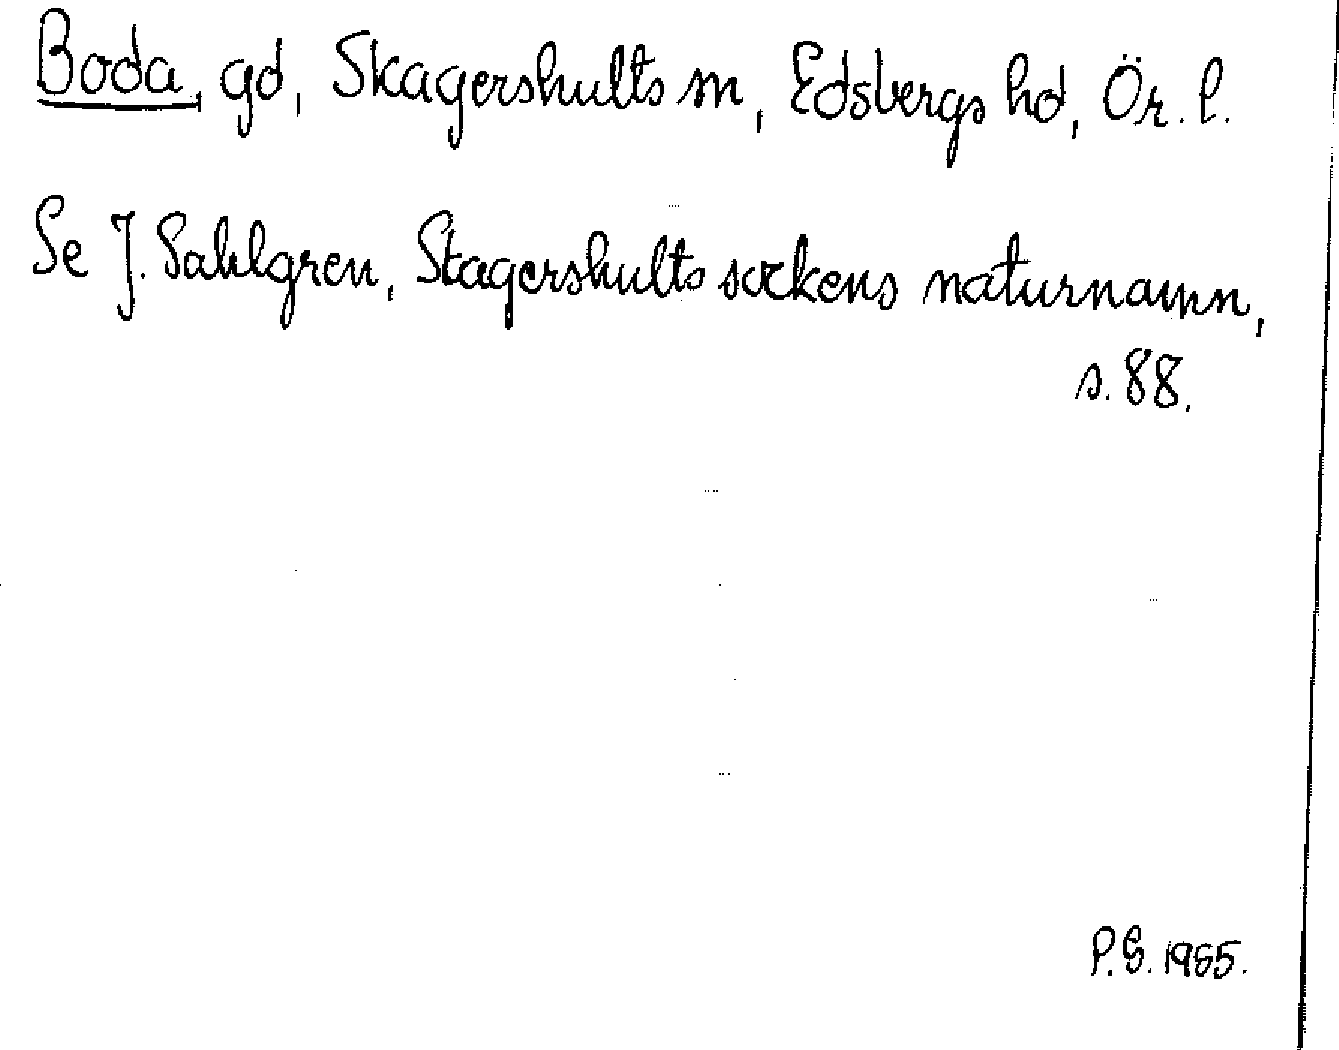 Boda, gd, Skagershults sn, Edsbergs hd, Ör. l.
Se J. Sahlgren, Skagershults sockens naturnamn,
s. 88.
P.G. 1955.